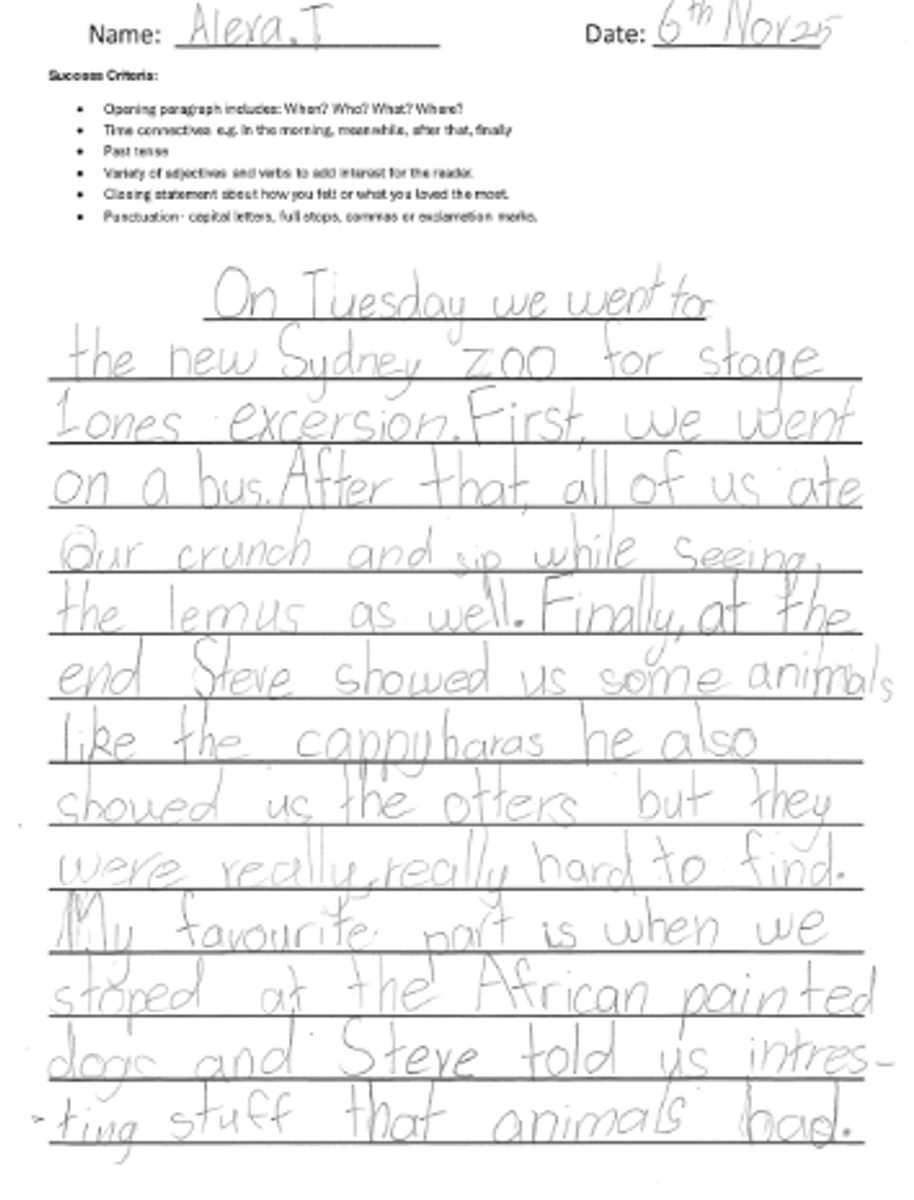 Name: Alexa.T Date: 6th Nov 25
Success Criteria:
• Opening paragraph includes: When? Who? What? Where?
• Time connectives e.g. In the morning, meanwhile, after that, finally
• Past tense
• Variety of adjectives and verbs to add interest for the reader.
• Closing statement about how you felt or what you loved the most.
• Punctuation- capital letters, full stops, commas or exclamation marks.
On Tuesday we went to
the new Sydney zoo for stage
1ones excersion. First, we went
on a bus. After that, all of us ate
Our crunch and sip while seeing
the lemus as well. Finally, at the
end Steve showed us some animals
like the cappybaras he also
showed us the otters but they
were really, really hard to find.
My favourite part is when we
stoped at the African painted
dogs and Steve told us intres-
-ting stuff that animals had.